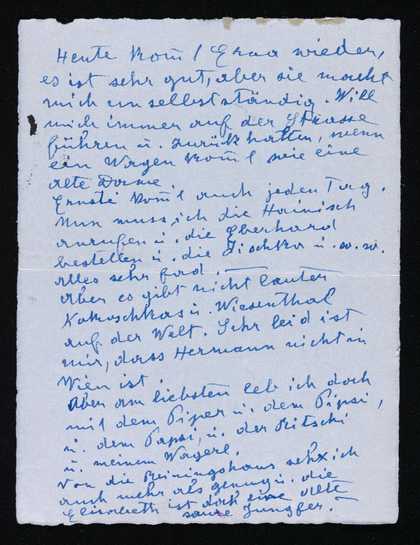 Heute kom̅t Erna wieder,
es ist sehr gut, aber sie macht
mich unselbstständig. Will
mich immer auf der Strasse
führen u. zurückhalten, wenn
ein Wagen kom̅t wie eine
alte Dame.
Ernsti kom̅t auch jeden Tag.
Nun muss ich die Hainisch
anrufen u. die Eberhard
bestellen u. die Tischka u.s.w.
alles sehr fad.
Aber es gibt nicht lauter
Kokoschkas u. Wiesenthal
auf der Welt. Sehr leid ist
mir, dass Hermann nicht in
Wien ist.
Aber am liebsten leb ich doch
mit dem Piper u. dem Pipsi,
u. dem Papsi, u. der Pitschi
u. meinem Wagerl.
Von die Reininghaus hab ich
auch mehr als genug u. die
Elisabeth ist doch eine alte
saure Jungfer.